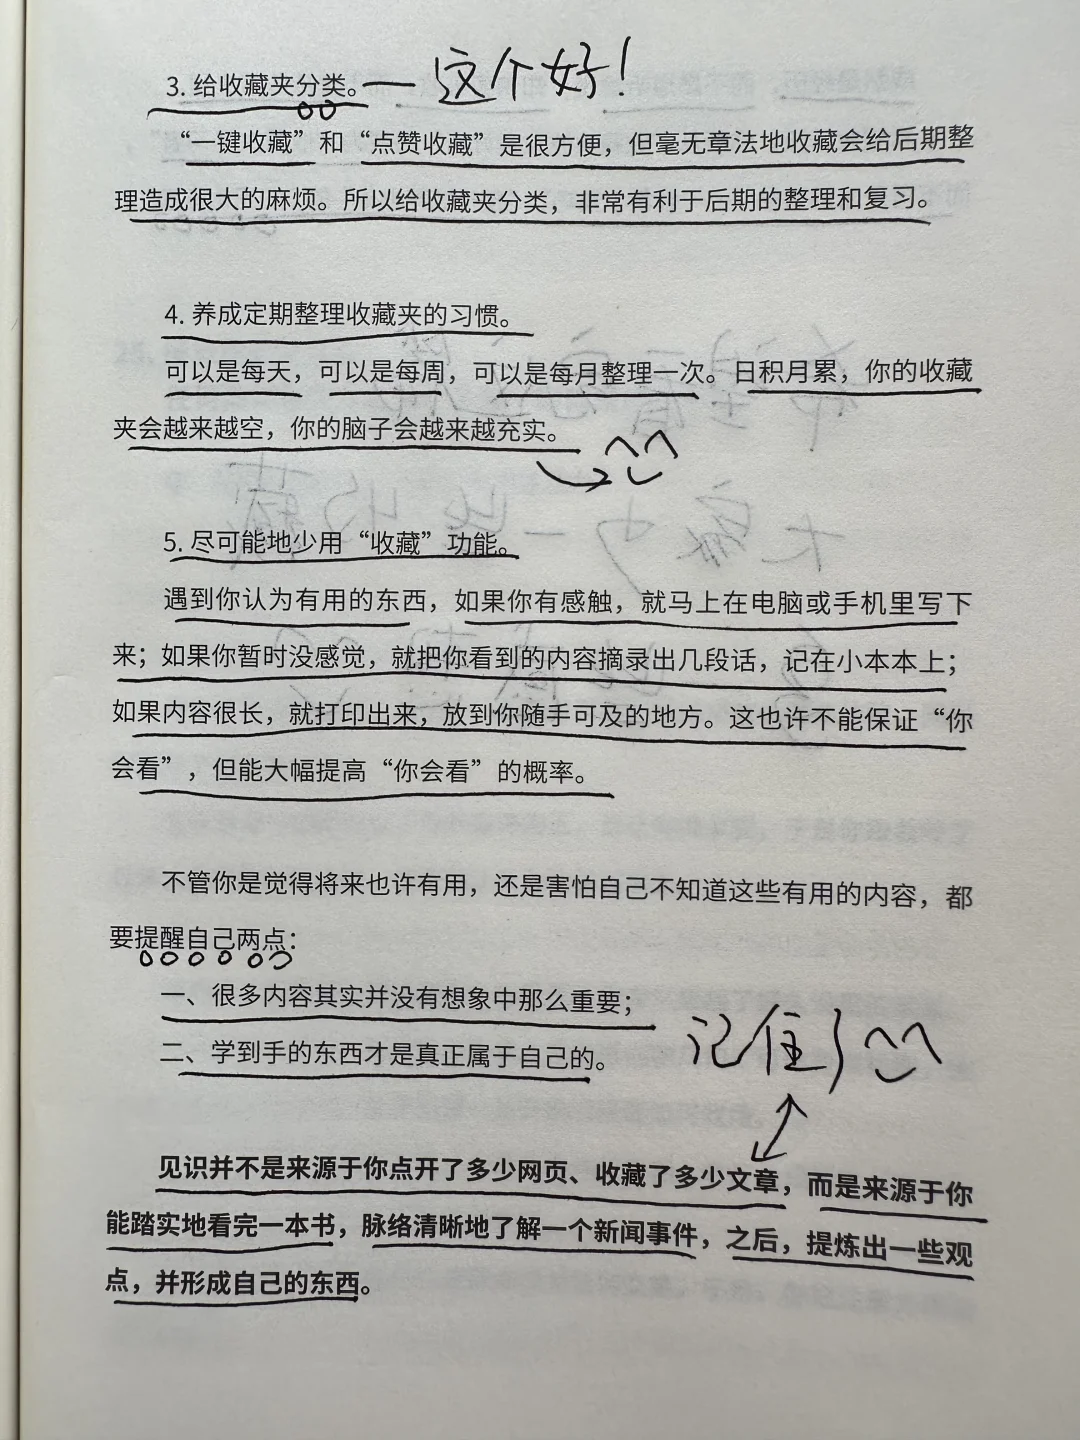 3. 给收藏夹分类。— 这个好！
“一键收藏”和“点赞收藏”是很方便，但毫无章法地收藏会给后期整
理造成很大的麻烦。所以给收藏夹分类，非常有利于后期的整理和复习。
4. 养成定期整理收藏夹的习惯。
可以是每天，可以是每周，可以是每月整理一次。日积月累，你的收藏
夹会越来越空，你的脑子会越来越充实。
5. 尽可能地少用“收藏”功能。
遇到你认为有用的东西，如果你有感触，就马上在电脑或手机里写下
来；如果你暂时没感觉，就把你看到的内容摘录出几段话，记在小本本上；
如果内容很长，就打印出来，放到你随手可及的地方。这也许不能保证“你
会看”，但能大幅提高“你会看”的概率。
不管你是觉得将来也许有用，还是害怕自己不知道这些有用的内容，都
要提醒自己两点：
一、很多内容其实并没有想象中那么重要；
二、学到手的东西才是真正属于自己的。
记住了
见识并不是来源于你点开了多少网页、收藏了多少文章，而是来源于你
能踏实地看完一本书，脉络清晰地了解一个新闻事件，之后，提炼出一些观
点，并形成自己的东西。